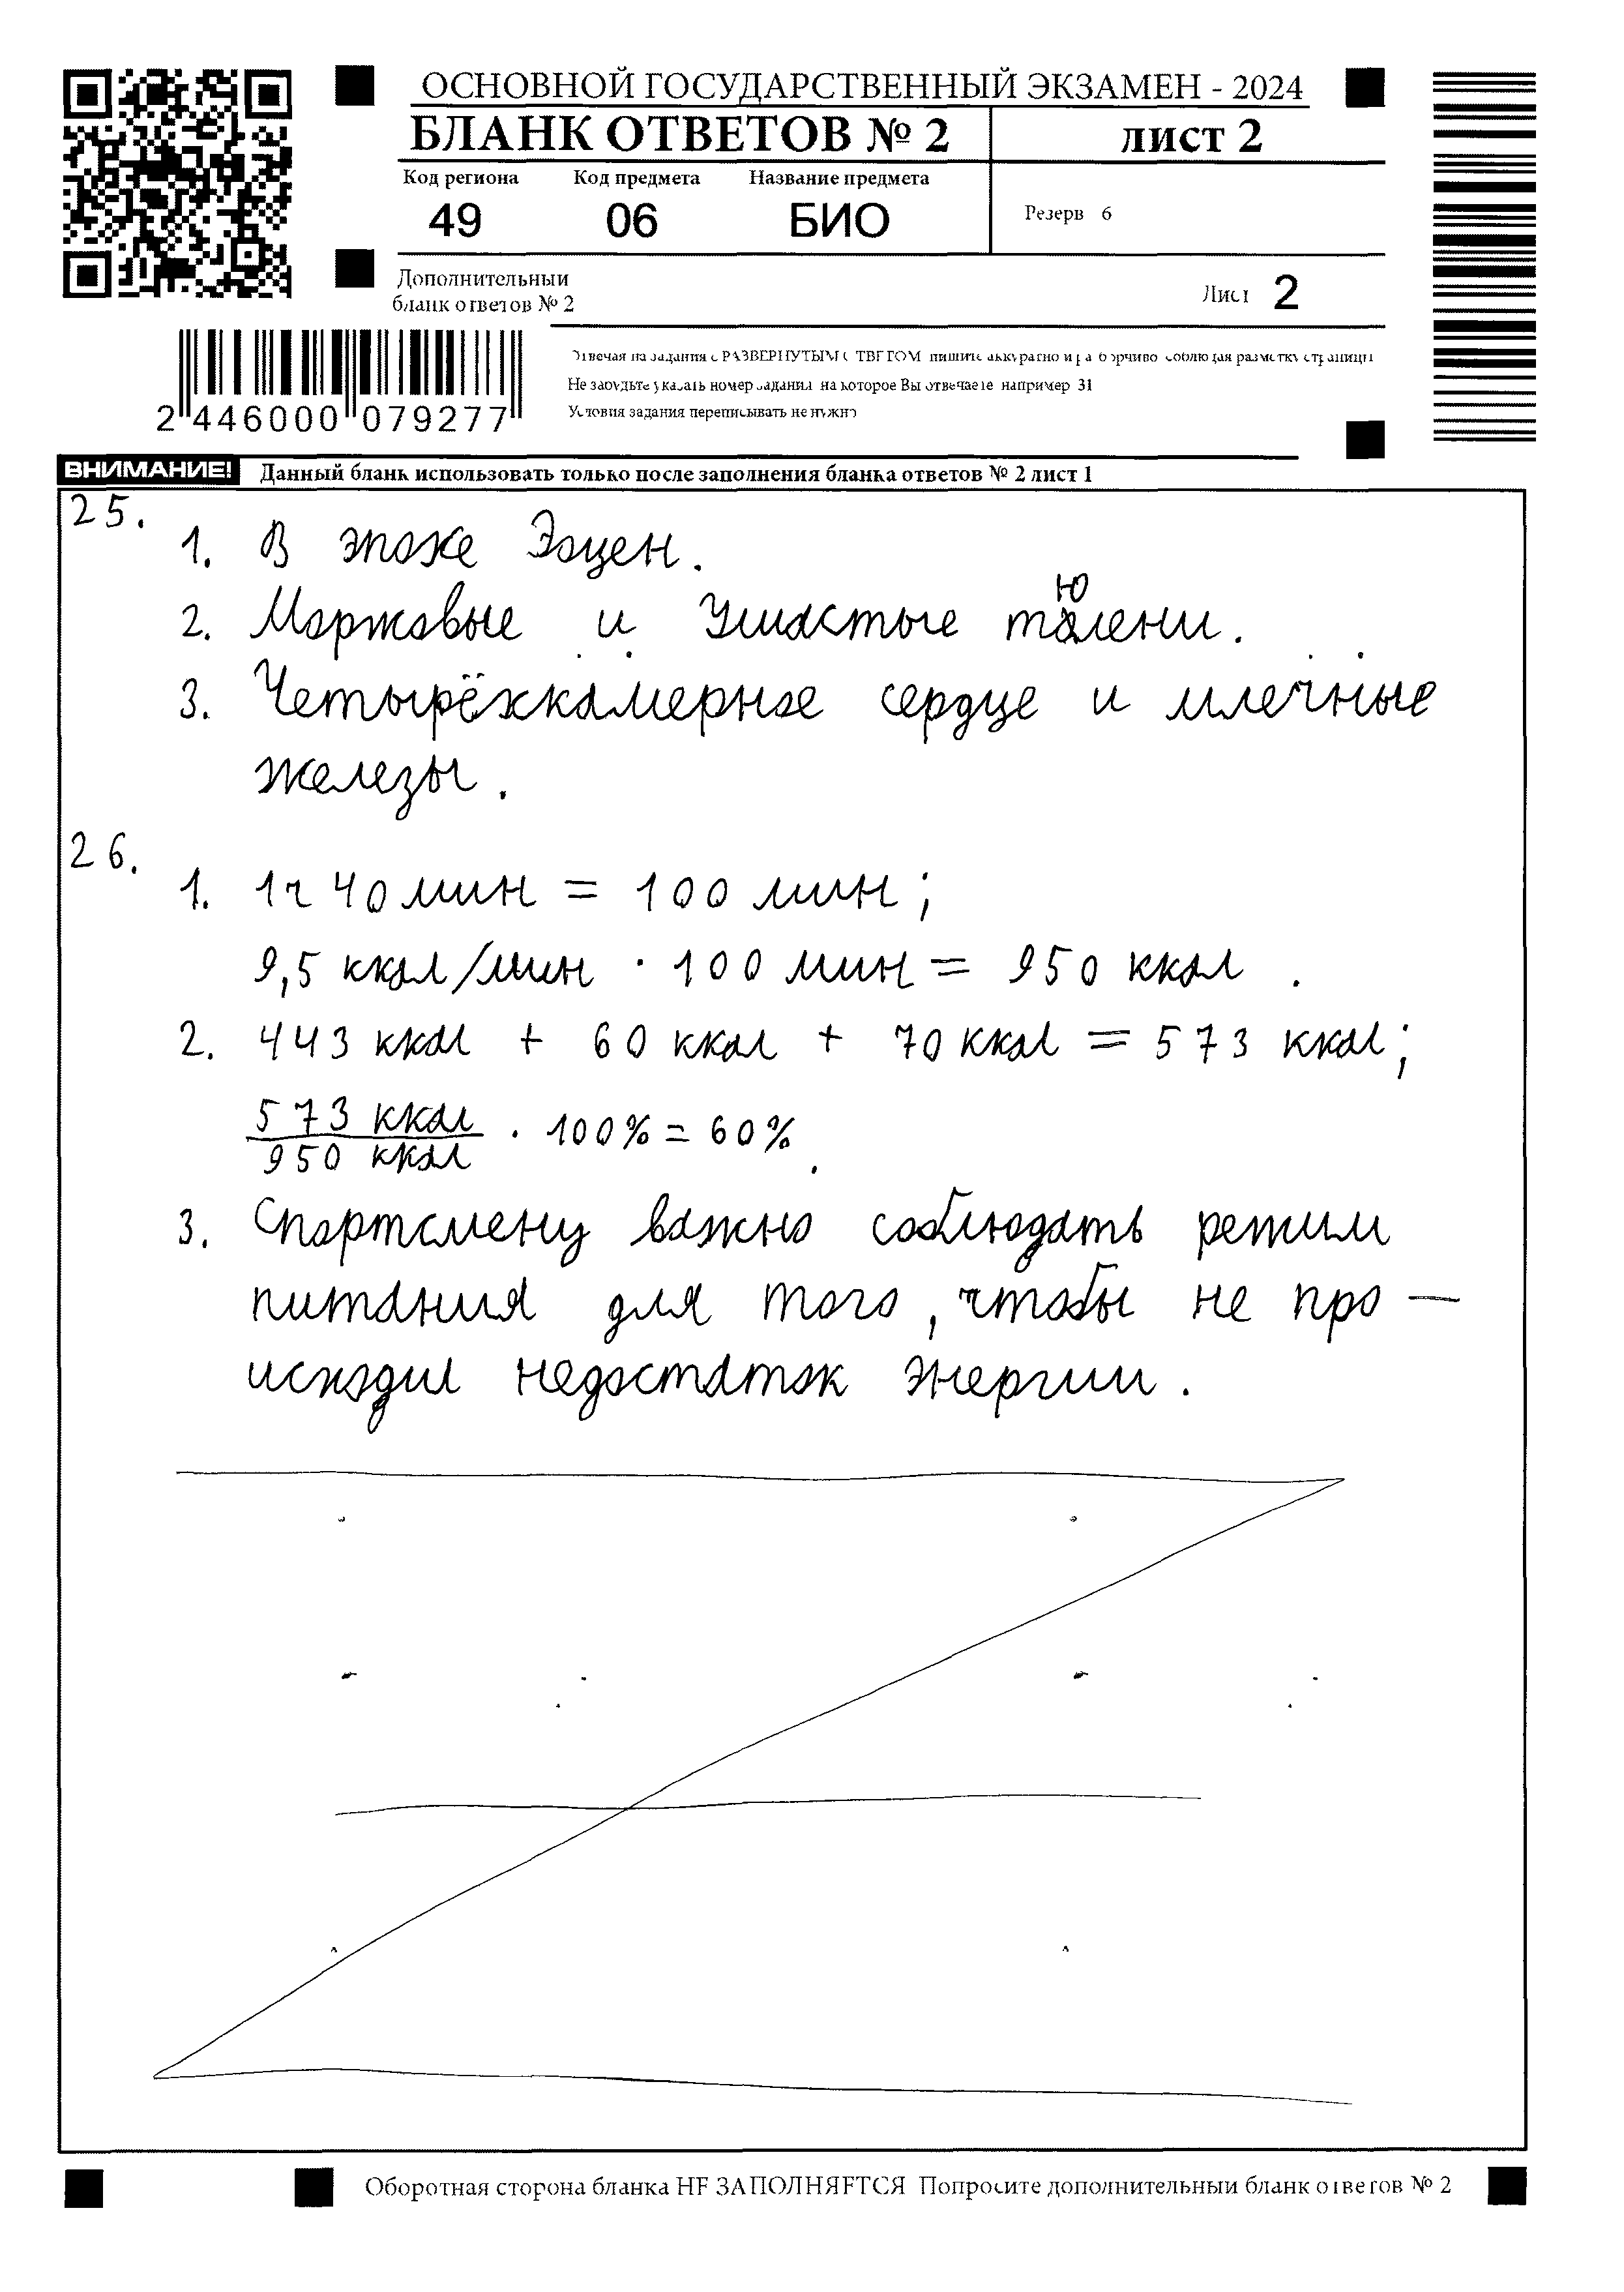 ОСНОВНОЙ ГОСУДАРСТВЕННЫЙ ЭКЗАМЕН - 2024
БЛАНК ОТВЕТОВ № 2
лист 2
Код региона Код предмета Название предмета
49 06 БИО
Резерв 6
Дополнительный
бланк ответов № 2
Лист 2
Отвечая на задания с РАЗВЕРНУТЫМ ОТВЕТОМ пишите аккуратно и разборчиво соблюдая разметку страницы
Не забудьте указать номер задания на которое Вы отвечаете например 31
Условия задания переписывать не нужно
2 446000 079277
ВНИМАНИЕ! Данный бланк использовать только после заполнения бланка ответов № 2 лист 1
25.
1. В эпохе Эоцен.
2. Моржовые и Ушастые тюлени.
3. Четырёхкамерное сердце и млечные
железы.
26.
1. 1ч 40 мин = 100 мин;
9,5 ккал/мин · 100 мин = 950 ккал.
2. 443 ккал + 60 ккал + 70 ккал = 573 ккал;
573 ккал
950 ккал · 100% = 60%.
3. Спортсмену важно соблюдать режим
питания для того, чтобы не про-
исходил недостаток энергии.
Оборотная сторона бланка НЕ ЗАПОЛНЯЕТСЯ Попросите дополнительный бланк ответов № 2